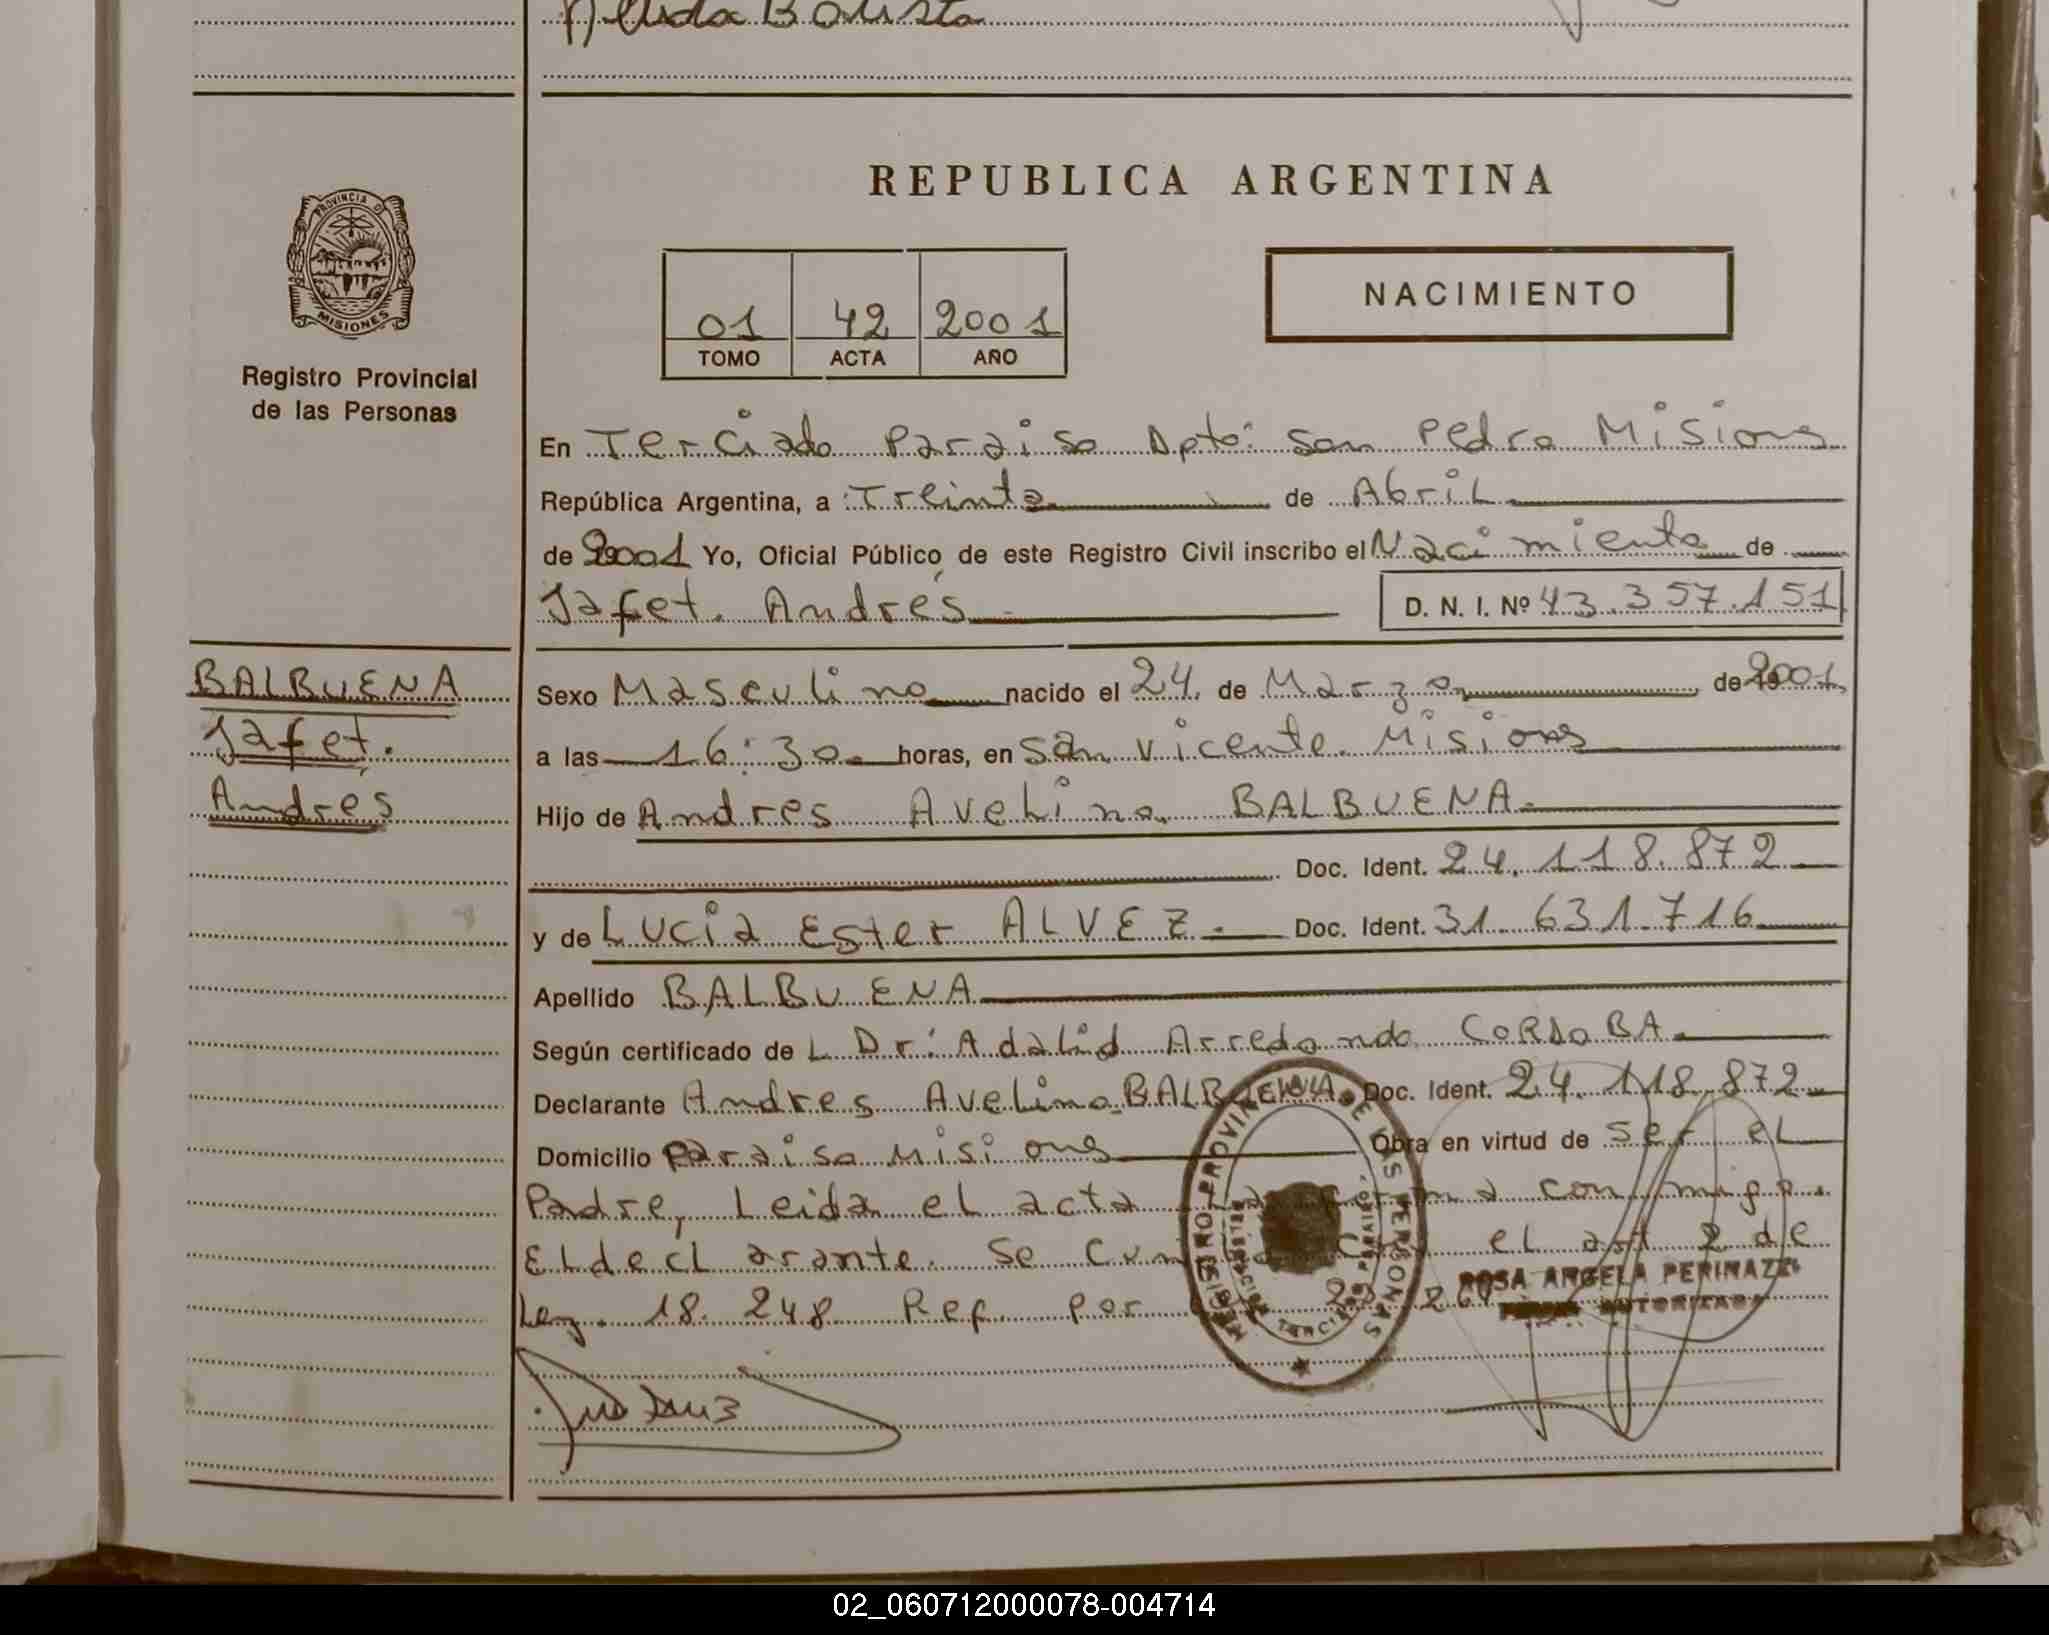 Nelida Batista
PROVINCIA DE
MISIONES
Registro Provincial
de las Personas
REPUBLICA ARGENTINA
01 42 2001
TOMO ACTA AÑO
NACIMIENTO
En Terciado Paraiso Dpto: San Pedro Misiones
República Argentina, a Treinta de Abril
de 2001 Yo, Oficial Público de este Registro Civil inscribo el Nacimiento de
Jafet. Andrés D. N. I. Nº 43.357.151
BALBUENA
Jafet.
Andrés
Sexo Masculino nacido el 24. de Marzo de 2001
a las 16:30 horas, en San Vicente. Misiones
Hijo de Andres Avelino BALBUENA
Doc. Ident. 24.118.872
y de Lucia Ester ALVEZ. Doc. Ident. 31.631.716
Apellido BALBUENA
Según certificado de L Dr: Adalid Arredondo CORDOBA
Declarante Andres Avelino BALBUENA Doc. Ident. 24.118.872
Domicilio Paraiso Misiones Obra en virtud de ser el
Padre, Leida el acta la firma con migo.
El declarante. Se el art 2 de
Ley. 18.248 Ref. por
REGISTRO PROVINCIAL DE LAS PERSONAS
ROSA ANGELA PERINAZZI
AUTORIZADA
02_060712000078-004714